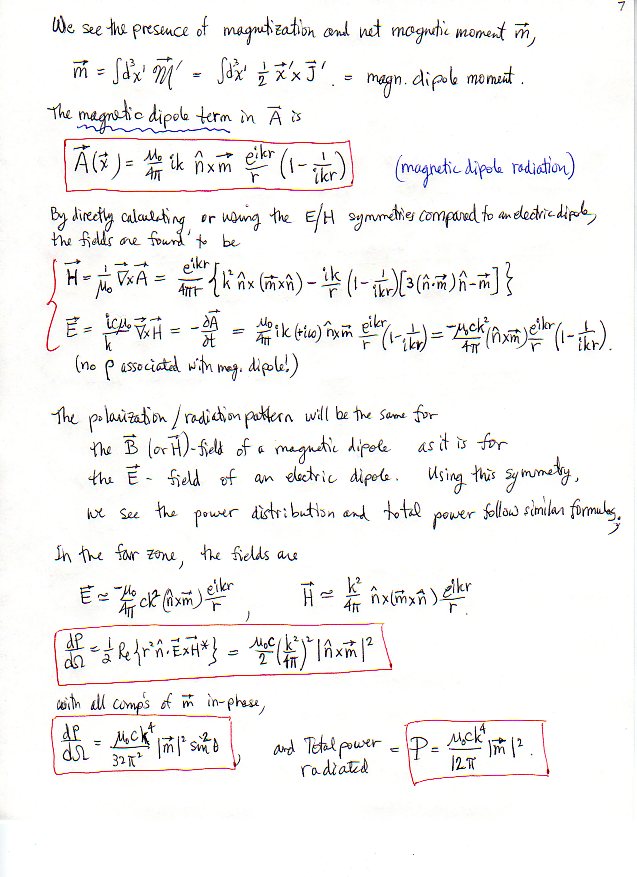 7
We see the presence of magnetization and net magnetic moment m⃗,
m⃗ = ∫d³x' M⃗' = ∫d³x' ½ x⃗' × J⃗' . = magn. dipole moment .
The magnetic dipole term in A⃗ is
A⃗(x⃗) = μ₀/4π ik n̂×m⃗ e^{ikr}/r (1 - 1/ikr) (magnetic dipole radiation)
By directly calculating, or using the E/H symmetries compared to an electric dipole,
the fields are found to be
H⃗ = 1/μ₀ ∇⃗×A⃗ = e^{ikr}/4πr {k² n̂×(m⃗×n̂) - ik/r (1 - 1/ikr)[3(n̂·m⃗)n̂ - m⃗]}
E⃗ = icμ₀/k ∇⃗×H⃗ = -∂A⃗/∂t = μ₀/4π ik(+iω) n̂×m⃗ e^{ikr}/r (1 - 1/ikr) = -μ₀ck²/4π (n̂×m⃗) e^{ikr}/r (1 - 1/ikr).
(no ρ associated with mag. dipole!)
The polarization / radiation pattern will be the same for
the B⃗ (or H⃗)-field of a magnetic dipole as it is for
the E⃗ - field of an electric dipole. Using this symmetry,
we see the power distribution and total power follow similar formulas;
In the far zone, the fields are
E⃗ ≃ -μ₀/4π ck² (n̂×m⃗) e^{ikr}/r , H⃗ ≃ k²/4π n̂×(m⃗×n̂) e^{ikr}/r .
dP/dΩ = ½ Re{r² n̂·E⃗×H⃗*} = μ₀c/2 (k²/4π)² |n̂×m⃗|²
with all comp's of m⃗ in-phase,
dP/dΩ = μ₀ck⁴/32π² |m⃗|² sin²θ , and Total power radiated = P = μ₀ck⁴/12π |m⃗|² .